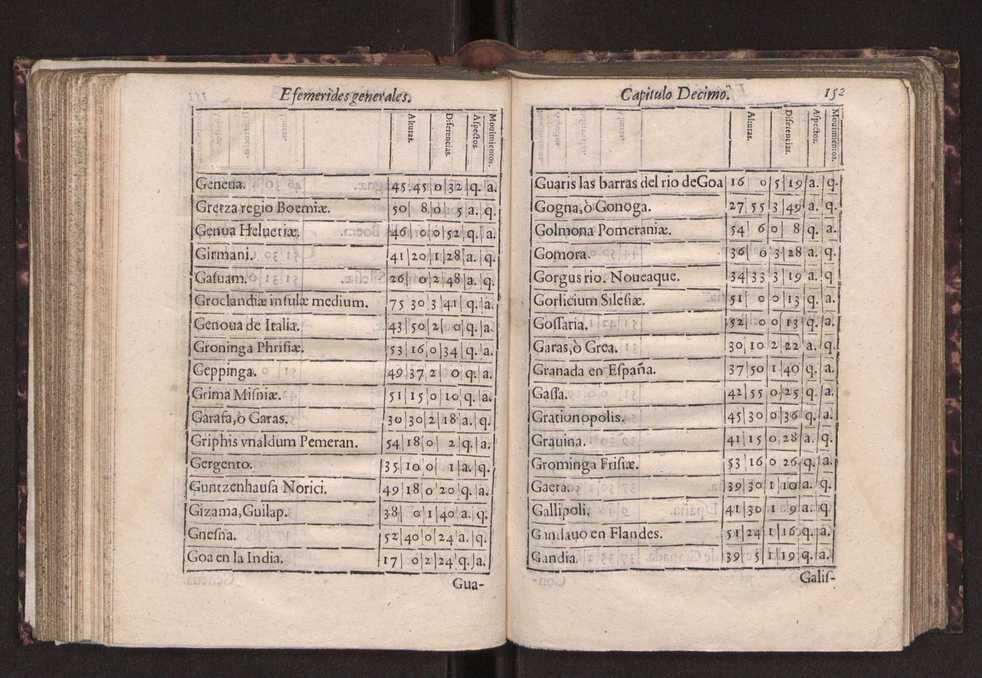 Efemerides generales.
Alturas. Diferencias. Aspectos. Mouimientos.
Geneua. 45 45 0 32 q. a.
Gretza regio Boemiæ. 50 8 0 5 a. q.
Genua Heluetiæ. 46 0 0 52 q. a.
Girmani. 41 20 1 28 a. q.
Gasuam. 26 0 2 48 a. q.
Groclandiæ insulæ medium. 75 30 3 41 q. a.
Genoua de Italia. 43 50 2 0 q. a.
Groninga Phrisiæ. 53 16 0 34 q. a.
Geppinga. 49 37 2 0 q. a.
Grima Misniæ. 51 15 0 10 q. a.
Garafa, ò Garas. 30 30 2 18 a. q.
Griphis vnaldum Pemeran. 54 18 0 2 q. a.
Gergento. 35 10 0 1 a. q.
Guntzenhausa Norici. 49 18 0 20 q. a.
Gizama, Guilap. 38 0 1 40 a. q.
Gnesna. 52 40 0 24 a. q.
Goa en la India. 17 0 2 24 q. a.
Gua-
Capitulo Decimo. 152
Alturas. Diferencias. Aspectos. Mouimientos.
Guaris las barras del rio de Goa 16 0 5 19 a. q.
Gogna, ò Gonoga. 27 55 3 49 a. q.
Golmona Pomeraniæ. 54 6 0 8 q. a.
Gomora. 36 0 3 28 a. q.
Gorgus rio. Noueaque. 34 33 3 19 a. q.
Gorlicium Silesiæ. 51 0 0 13 q. a.
Gossaria. 52 0 0 13 q. a.
Garas, ò Grea. 30 10 2 22 a. q.
Granada en España. 37 50 1 40 q. a.
Gassa. 42 55 0 25 q. a.
Grationopolis. 45 30 0 36 q. a.
Grauina. 41 15 0 28 a. q.
Grominga Frisiæ. 53 16 0 26 q. a.
Gaeta. 39 30 1 10 a. q.
Gallipoli. 41 30 1 9 a. q.
Gandauo en Flandes. 51 24 1 16 q. a.
Gandia. 39 5 1 19 q. a.
Galis-